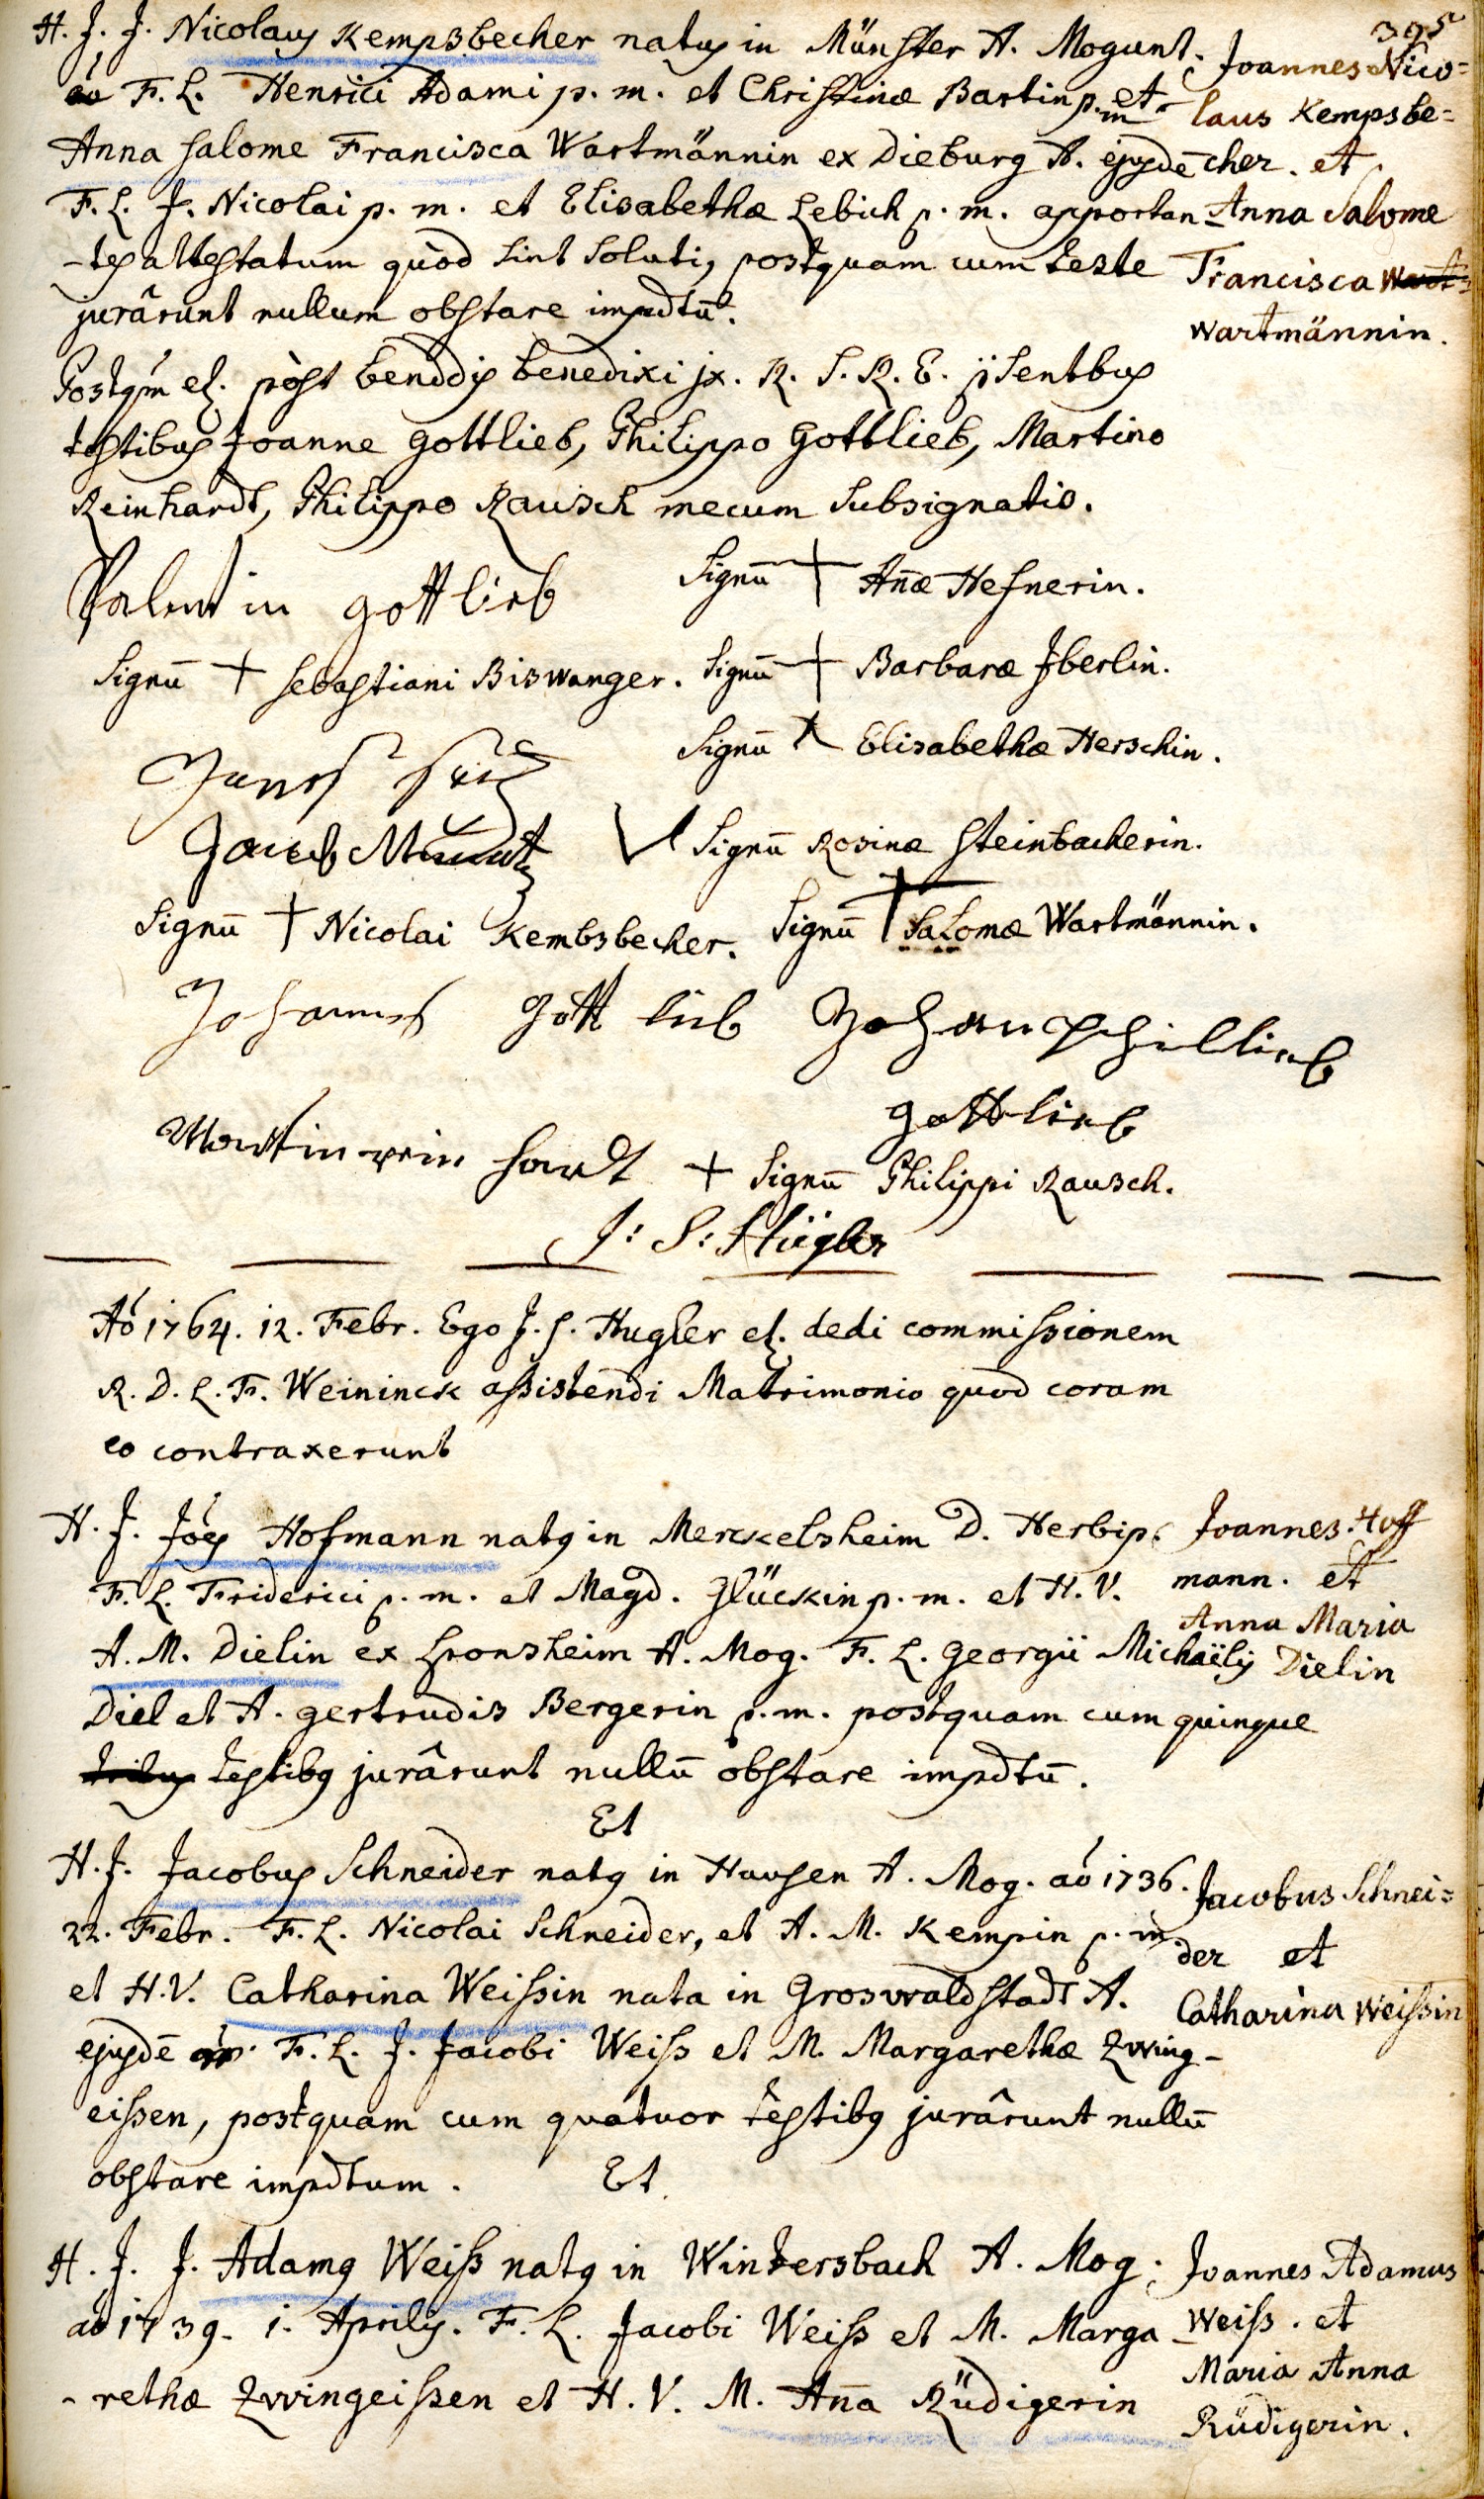 395
H. J. J. Nicolaus Kempsbecher natus in Münster A. Mogunt.
F. L. Henrici Adami p. m. et Christinæ Bartin p. m. et
Anna Salome Francisca Wartmännin ex Dieburg A. ejusdē
F. L. J. Nicolai p. m. et Elisabethæ Lebich p. m. apportan
-tes attestatum quòd sint soluti, postquam cum teste
jurârunt nullum obstare impdtū.
Joannes Nico=
laus Kempsbe=
cher. et
Anna Salome
Francisca
Wartmännin.
Postqm el. pòst benddis benedixi jx. R. S. R. E. psentbus
testibus Joanne Gottlieb, Philippo Gottlieb, Martino
Reinhardt, Philippo Rausch mecum subsignatis.
Valentin Gottlieb Signū + Añæ Hefnerin.
Signū + Sebastiani Biswanger. Signū + Barbaræ Jberlin.
Signū + Elisabethæ Herschin.
Jacob Signū Rosinæ Steinbacherin.
Signū + Nicolai Kembsbecher. Signū + Salomæ Wartmännin.
Johannes Gottlieb Johan Phillieb
Gottlieb
Martin reinhardt + Signū Philippi Rausch.
J: S: Hügler
Aó 1764. 12. Febr. Ego J. S. Hugler el. dedi commissionem
R. D. L. F. Weininck assistendi Matrimonio quod coram
eo contraxerunt
H. J. Joēs Hofmann natg in Merckelsheim D. Herbip.
F. L. Friderici p. m. et Magd. Glückin p. m. et H. V.
A. M. Dielin ex Hronsheim A. Mog. F. L. Georgii Michaëlis
Diel et A. Gertrudis Bergerin p. m. postquam cum quinque
tribus testibg jurârunt nullū obstare impdtū.
Joannes Hoff
mann. et
Anna Maria
Dielin
Et
H. J. Jacobus Schneider natg in Hausen A. Mog. aó 1736.
22. Febr. F. L. Nicolai Schneider, et A. M. Kempin p. m.
et H. V. Catharina Weissin nata in Groswaldstadt A.
ejusdē F. L. J. Jacobi Weiss et M. Margarethæ Zwing-
eissen, postquam cum quatuor testibg jurârunt nullū
obstare impdtum. Et
Jacobus Schnei=
der et
Catharina Weissin
H. J. J. Adamg Weiss natg in Wintersbach A. Mog.
aó 1739. 1. Aprilis. F. L. Jacobi Weiss et M. Marga
-rethæ Zwingeissen et H. V. M. Aña Rüdigerin
Joannes Adamus
Weiss. et
Maria Anna
Rüdigerin.